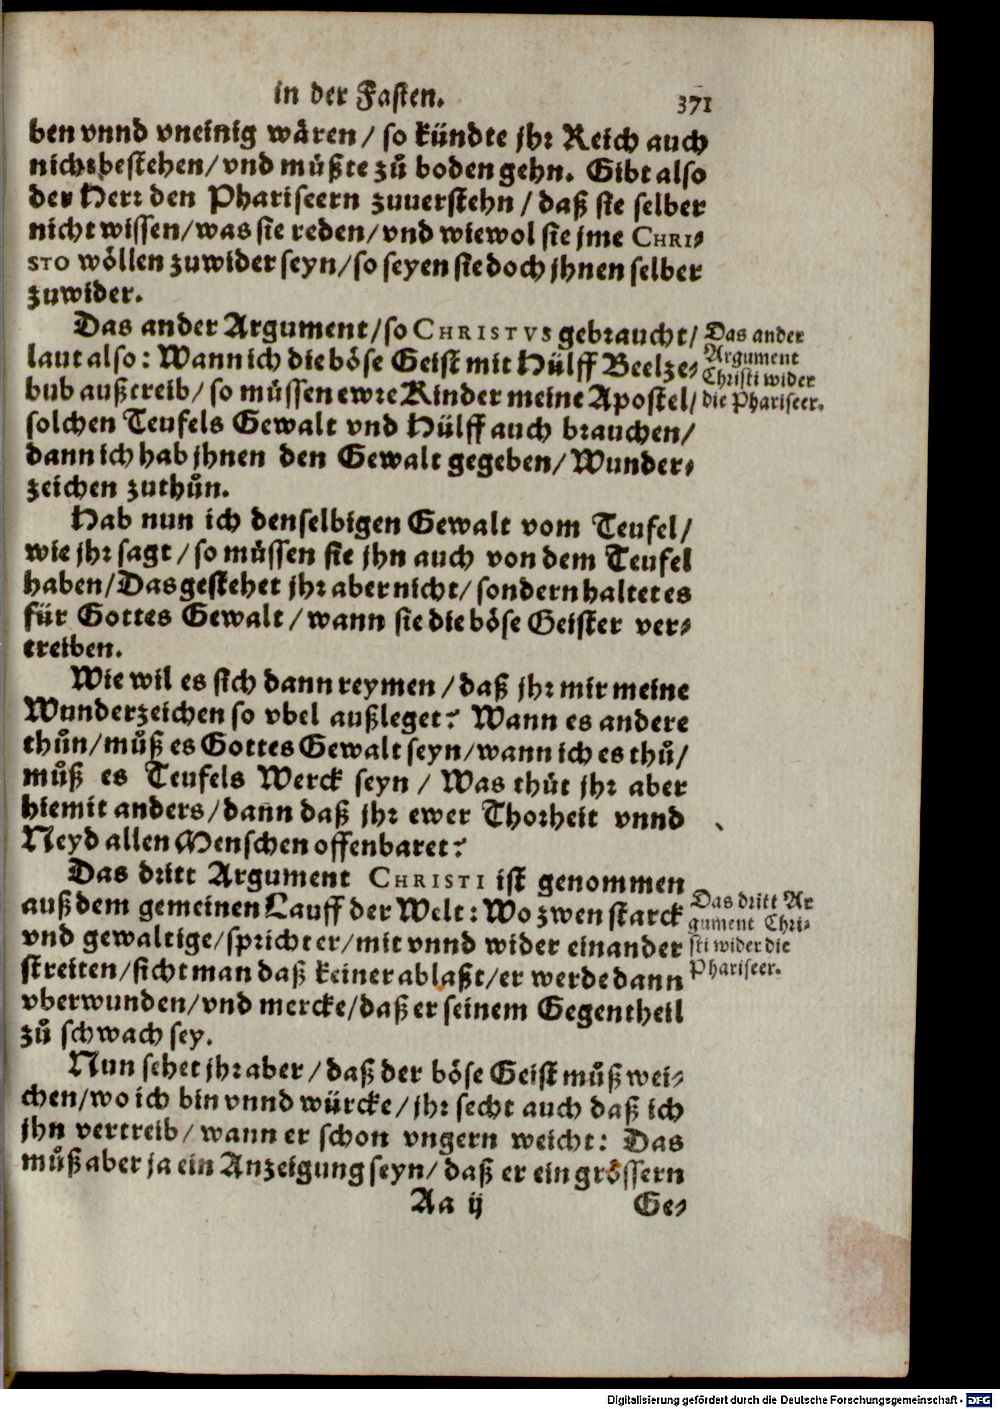 in der Fasten.
371
ben vnnd vneinig wären / so kündte jhr Reich auch
nicht bestehen / vnd müßte zů boden gehn. Gibt also
der Herr den Phariseern zuuerstehn / daß sie selber
nicht wissen / was sie reden / vnd wiewol sie jme CHRI-
STO wöllen zuwider seyn / so seyen sie doch jhnen selber
zuwider.
Das ander Argument / so CHRISTVS gebraucht /
laut also: Wann ich die böse Geist mit Hülff Beelze-
bub außtreib / so müssen ewre Kinder meine Apostel /
solchen Teufels Gewalt vnd Hülff auch brauchen /
dann ich hab jhnen den Gewalt gegeben / Wunder-
zeichen zuthůn.
Das ander
Argument
Christi wider
die Phariseer.
Hab nun ich denselbigen Gewalt vom Teufel /
wie jhr sagt / so müssen sie jhn auch von dem Teufel
haben / Das gestehet jhr aber nicht / sondern haltet es
für Gottes Gewalt / wann sie die böse Geister ver-
treiben.
Wie wil es sich dann reymen / daß jhr mir meine
Wunderzeichen so vbel außleget? Wann es andere
thůn / můß es Gottes Gewalt seyn / wann ich es thů /
můß es Teufels Werck seyn / Was thüt jhr aber
hiemit anders / dann daß jhr ewer Thorheit vnnd
Neyd allen Menschen offenbaret?
Das dritt Argument CHRISTI ist genommen
auß dem gemeinen Lauff der Welt: Wo zwen starck
vnd gewaltige / spricht er / mit vnnd wider einander
streiten / sicht man daß keiner ablaßt / er werde dann
vberwunden / vnd mercke / daß er seinem Gegentheil
zů schwach sey.
Das dritt Ar
gument Chri-
sti wider die
Phariseer.
Nun sehet jhr aber / daß der böse Geist můß wei-
chen / wo ich bin vnnd würcke / jhr secht auch daß ich
jhn vertreib / wann er schon vngern weicht: Das
můß aber ja ein Anzeigung seyn / daß er ein grössern
Aa ij
Ge-
Digitalisierung gefördert durch die Deutsche Forschungsgemeinschaft - DFG